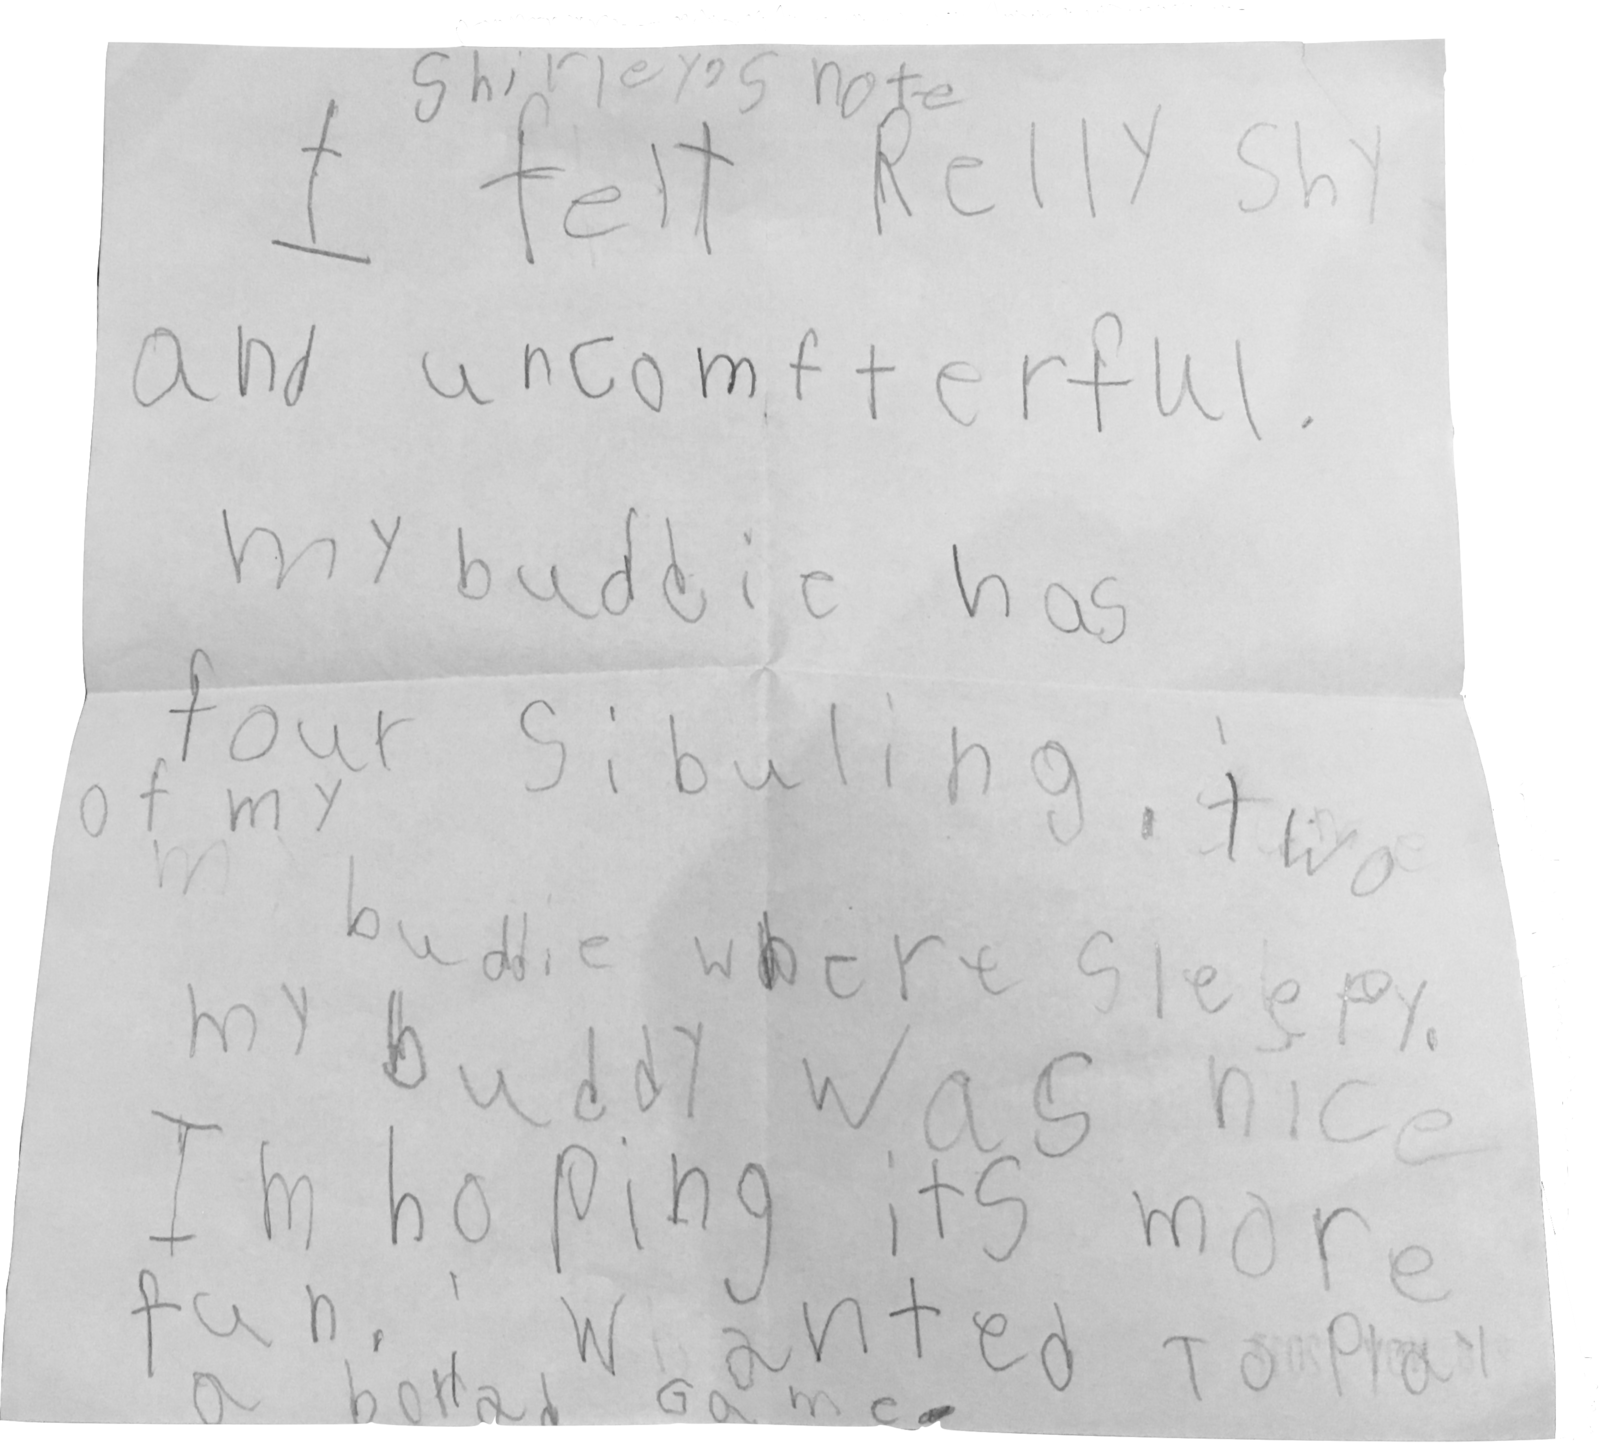 Shirley's note
I felt Relly shy
and uncomfterful.
my buddie has
four Sibuling. two
of my
buddie where sleepy.
my buddy was nice
Im hoping its more
fun. i wanted To Play
a borad Game.